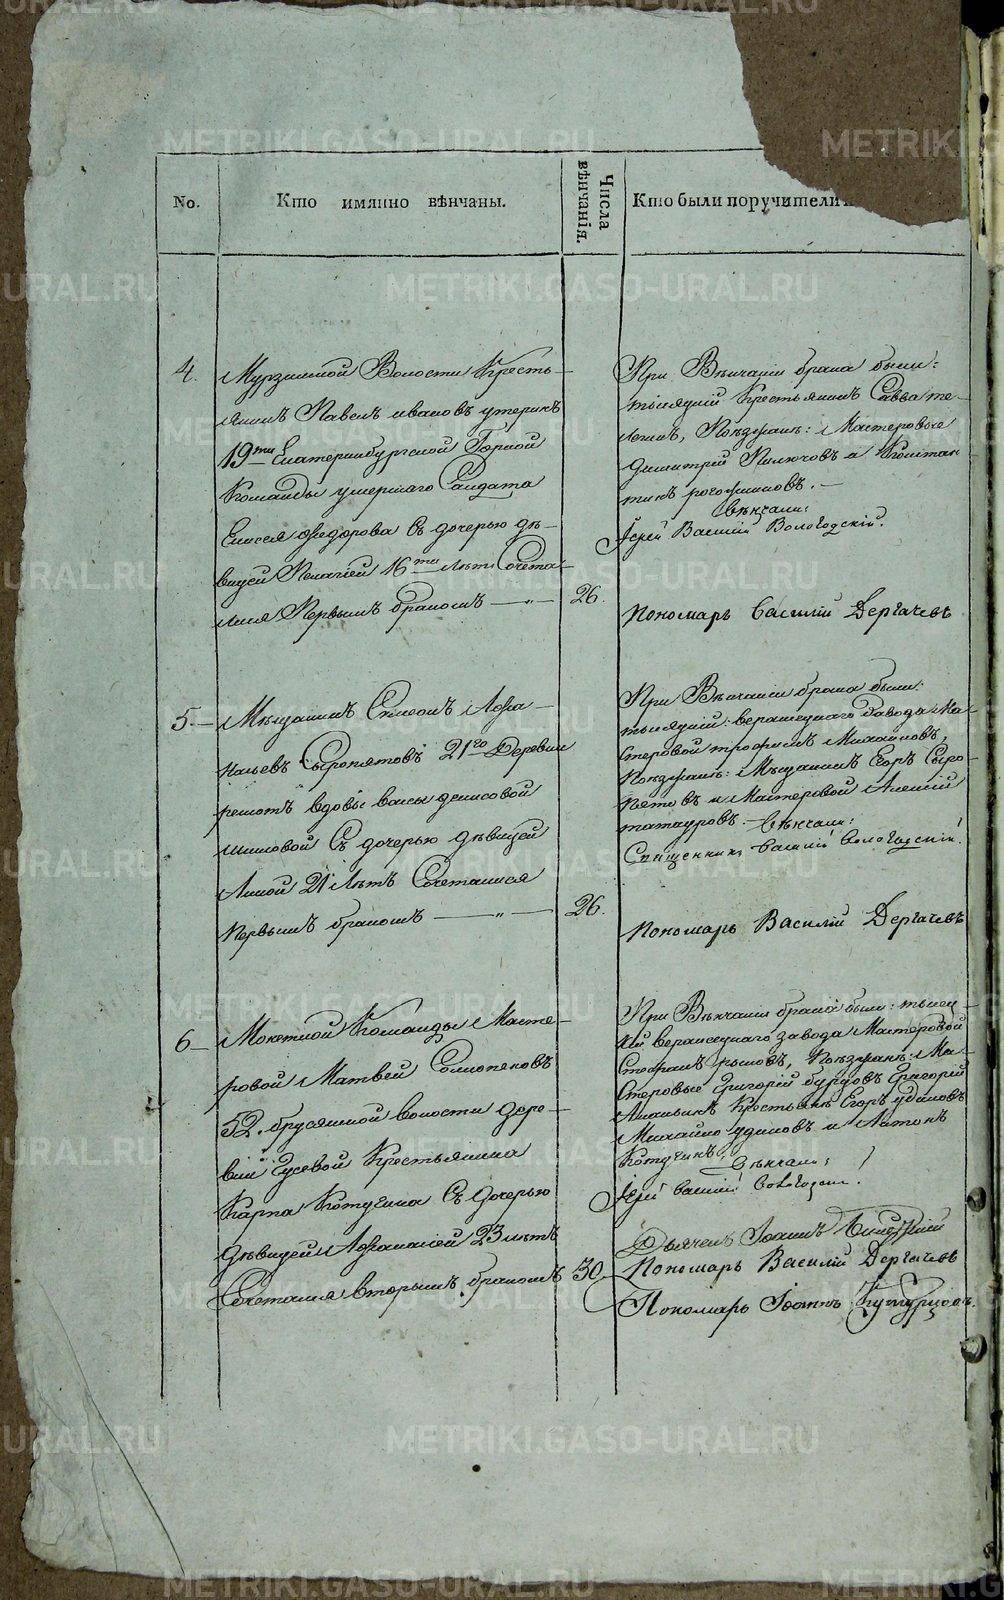 No.
Кто имянно вѣнчаны.
Числа вѣнчанiя.
Кто были поручители
4.
Мурзинской Волости Кресть-
янинъ Павелъ ивановъ
19ти Екатеринбургской Горной
Команды умершаго Салдата
Елисея Федорова Съ дочерью дѣ-
вицей Пелагiей 16ти лѣтъ Сочета-
лися Первымъ бракомъ — „ —
26.
При Вѣнчанiи брака были:
тысяцкiй Крестьянинъ Савва
Поѣзжанъ: Мастеровые
Димитрiй и Констан
тинъ
вѣнчали:
Iерей Василiй Вологодскiй.
Пономарь Василiй Дергачевъ
5.—
Мѣщанинъ Симеонъ Афа-
насьевъ Сыропятовъ 21го Деревни
решотъ вдовы васы денисовой
шиловой Съ дочерью дѣвицей
Анной 21 Лѣтъ Сочеталися
Первымъ бракомъ — „ —
26.
При Вѣнчанiи брака были:
тысяцкiй: верхисецкаго Завода Ма-
стеровой трофимъ Михайловъ,
Поѣзжанъ: Мѣщанинъ Егоръ Сыро-
пятовъ и Мастеровой Алексiй
татауровъ. — Вѣнчали:
Священникъ Василiй Вологодскiй.
Пономарь Василiй Дергачевъ
6—
Монетной Команды Масте-
ровой Матвей
52. брусянской волости дере-
внiи Гусевой Крестьянина
Карпа Котугина Съ дочерью
дѣвицей Афанасiей 23 лѣтъ
Сочеталися вторымъ бракомъ
30.
При Вѣнчанiи брака были: тысец-
кiй верхисецкаго завода Мастеровой
Поѣзжанъ: Ма-
стеровые Григорiй бурдовъ Григорiй
Крестьяне Егоръ удинцовъ
Михайло удинцовъ и Антонъ
Котугинъ. Вѣнчали:
Iерей Василiй Вологодск.
Дьячекъ Iоаннъ
Пономарь Василiй Дергачевъ
Пономарь Iоаннъ
METRIKI.GASO-URAL.RU